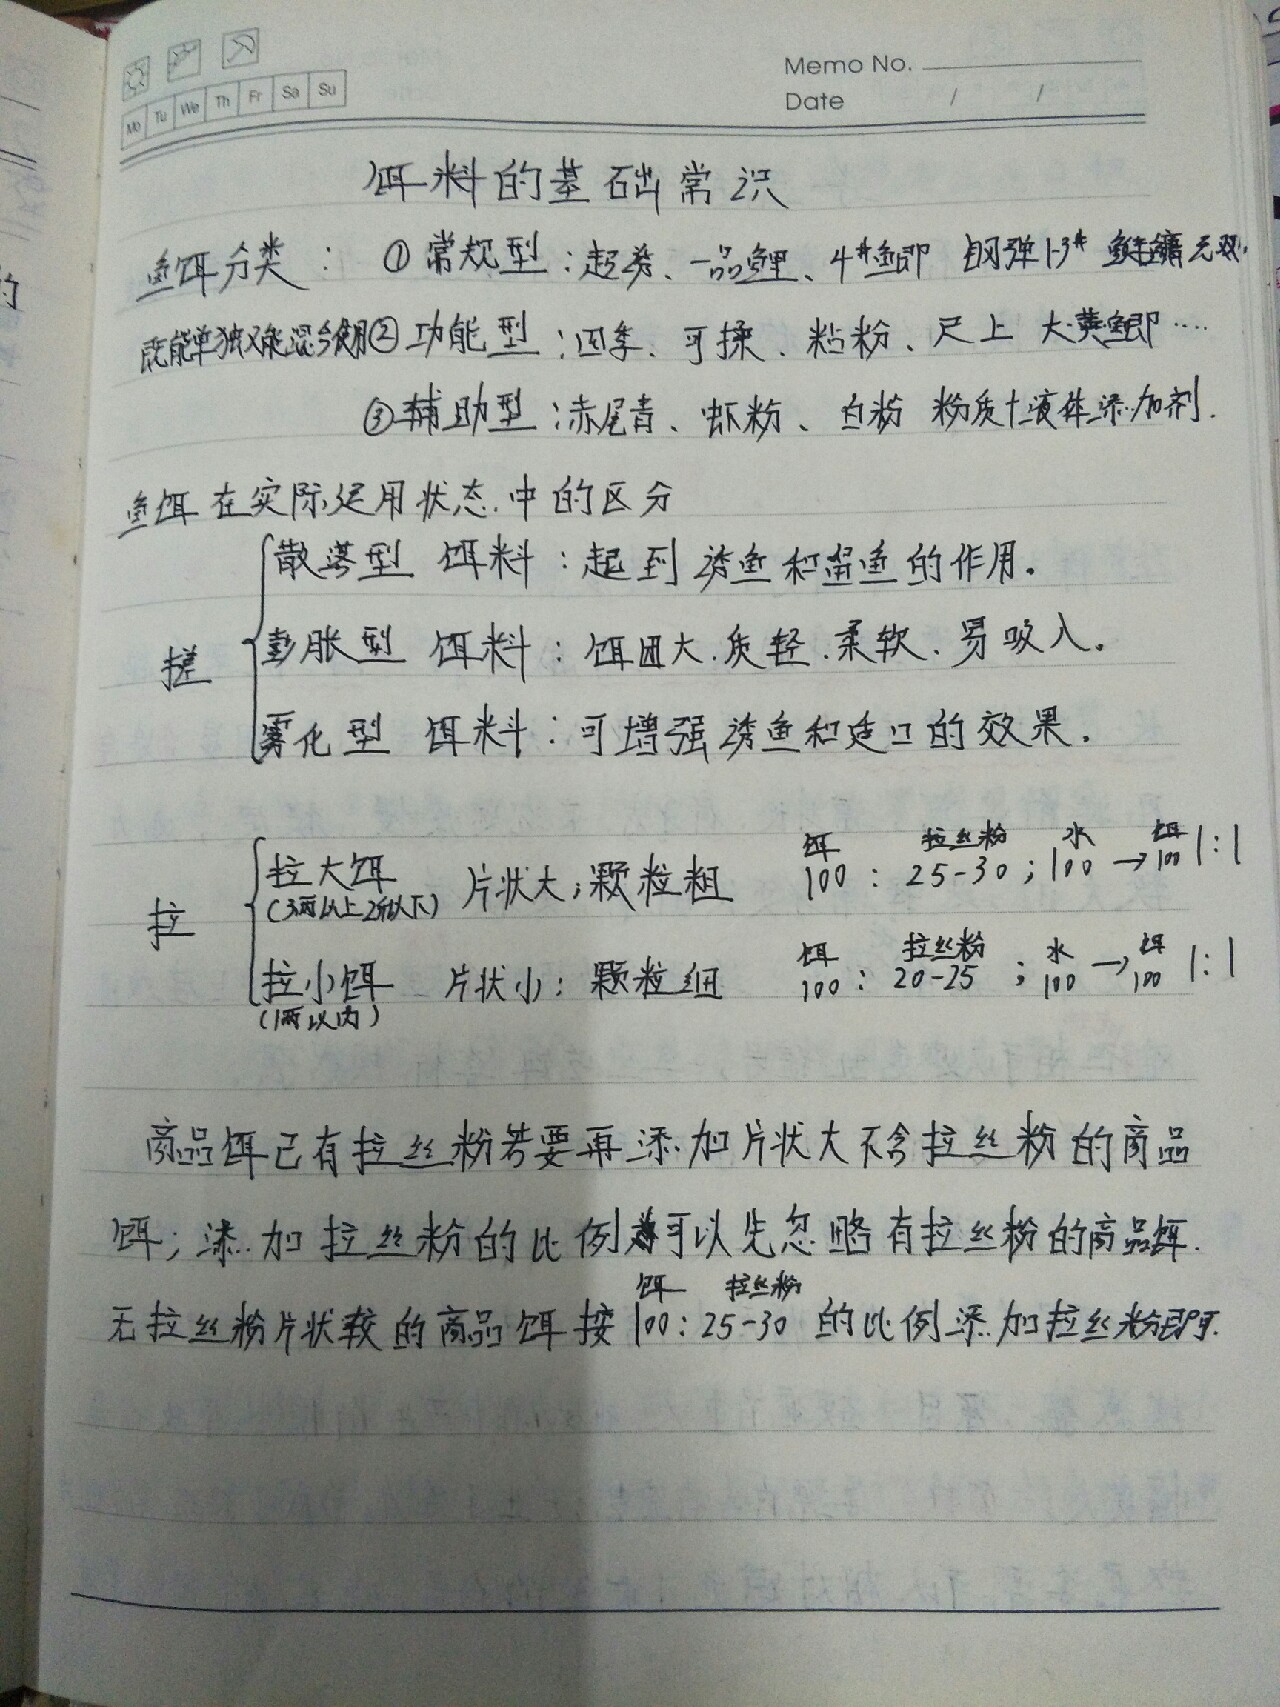 Memo No.
Date / /
Mo Tu We Th Fr Sa Su
饵料的基础常识
鱼饵分类：①常规型：超秀、一品鲤、4#鲫 钢弹1-3# 鲢鳙无双.
既能单独又能混合使用②功能型：四季、可揉、粘粉、尺上 大黄鲫····
③辅助型：赤尾青、虾粉、白粉 粉质+液体添加剂.
鱼饵在实际运用状态中的区分
散落型 饵料：起到诱鱼和留鱼的作用.
搓 膨胀型 饵料：饵团大.质轻.柔软.易吸入.
雾化型 饵料：可增强诱鱼和适口的效果.
饵 拉丝粉 水 饵
拉大饵 片状大；颗粒粗 100：25-30；100→100 1:1
(3两以上2斤以下)
拉
饵 拉丝粉 水 饵
拉小饵 片状小：颗粒细 100：20-25；100→100 1:1
(1两以内)
商品饵已有拉丝粉若要再添加片状大不含拉丝粉的商品
饵；添加拉丝粉的比例可以先忽略有拉丝粉的商品饵.
饵 拉丝粉
无拉丝粉片状较的商品饵按100：25-30的比例添加拉丝粉即可.